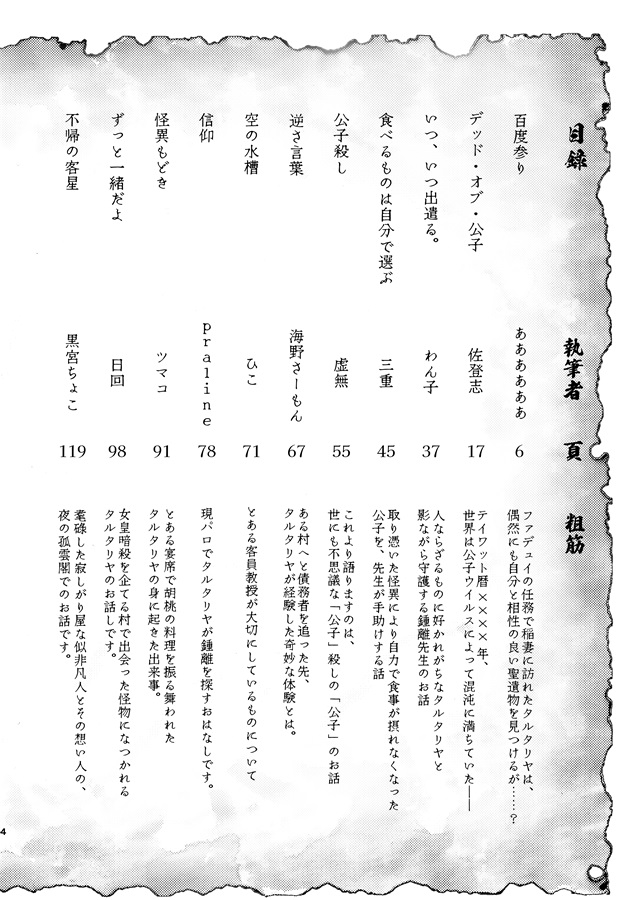 目録
執筆者
頁
粗筋
百度参り
ああああああ
6
ファデュイの任務で稲妻に訪れたタルタリヤは、
偶然にも自分と相性の良い聖遺物を見つけるが……？
デッド・オブ・公子
佐登志
17
テイワット暦××××年、
世界は公子ウイルスによって混沌に満ちていた――
いつ、いつ出遣る。
わん子
37
人ならざるものに好かれがちなタルタリヤと
影ながら守護する鍾離先生のお話
食べるものは自分で選ぶ
三重
45
取り憑いた怪異により自力で食事が摂れなくなった
公子を、先生が手助けする話
公子殺し
虚無
55
これより語りますのは、
世にも不思議な「公子」殺しの「公子」のお話
逆さ言葉
海野さーもん
67
ある村へと債務者を追った先、
タルタリヤが経験した奇妙な体験とは。
空の水槽
ひこ
71
とある客員教授が大切にしているものについて
信仰
praline
78
現パロでタルタリヤが鍾離を探すおはなしです。
怪異もどき
ツマコ
91
とある宴席で胡桃の料理を振る舞われた
タルタリヤの身に起きた出来事。
ずっと一緒だよ
日回
98
女皇暗殺を企てる村で出会った怪物になつかれる
タルタリヤのお話しです。
不帰の客星
黒宮ちょこ
119
耄碌した寂しがり屋な似非凡人とその想い人の、
夜の孤雲閣でのお話です。
4